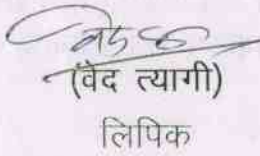 (वेद त्यागी)
लिपिक